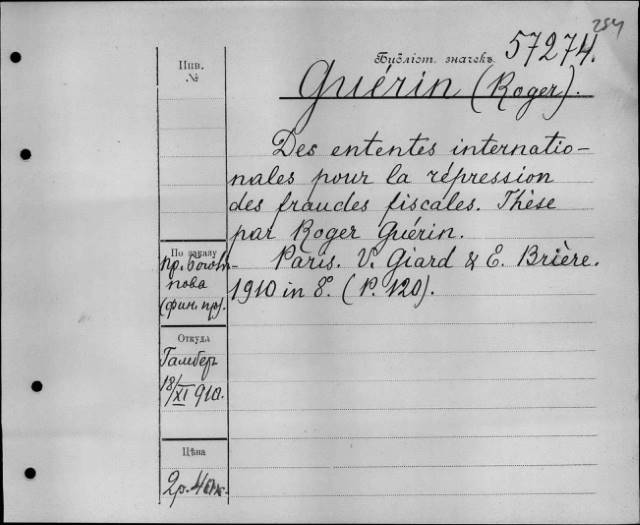 254
Библіот. значекъ 57274.
Guérin (Roger).
Инв.
№
Des ententes internatio-
nales pour la répression
des fraudes fiscales. Thèse
par Roger Guérin.
Paris. V. Giard & E. Brière.
1910 in 8. (P. 120).
По заказу
пр.
(фин. пр).
Откуда
18/XI 910.
Цѣна
2р.